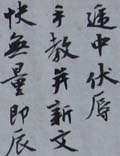 遞中伏辱
手教并新文
快無量即辰